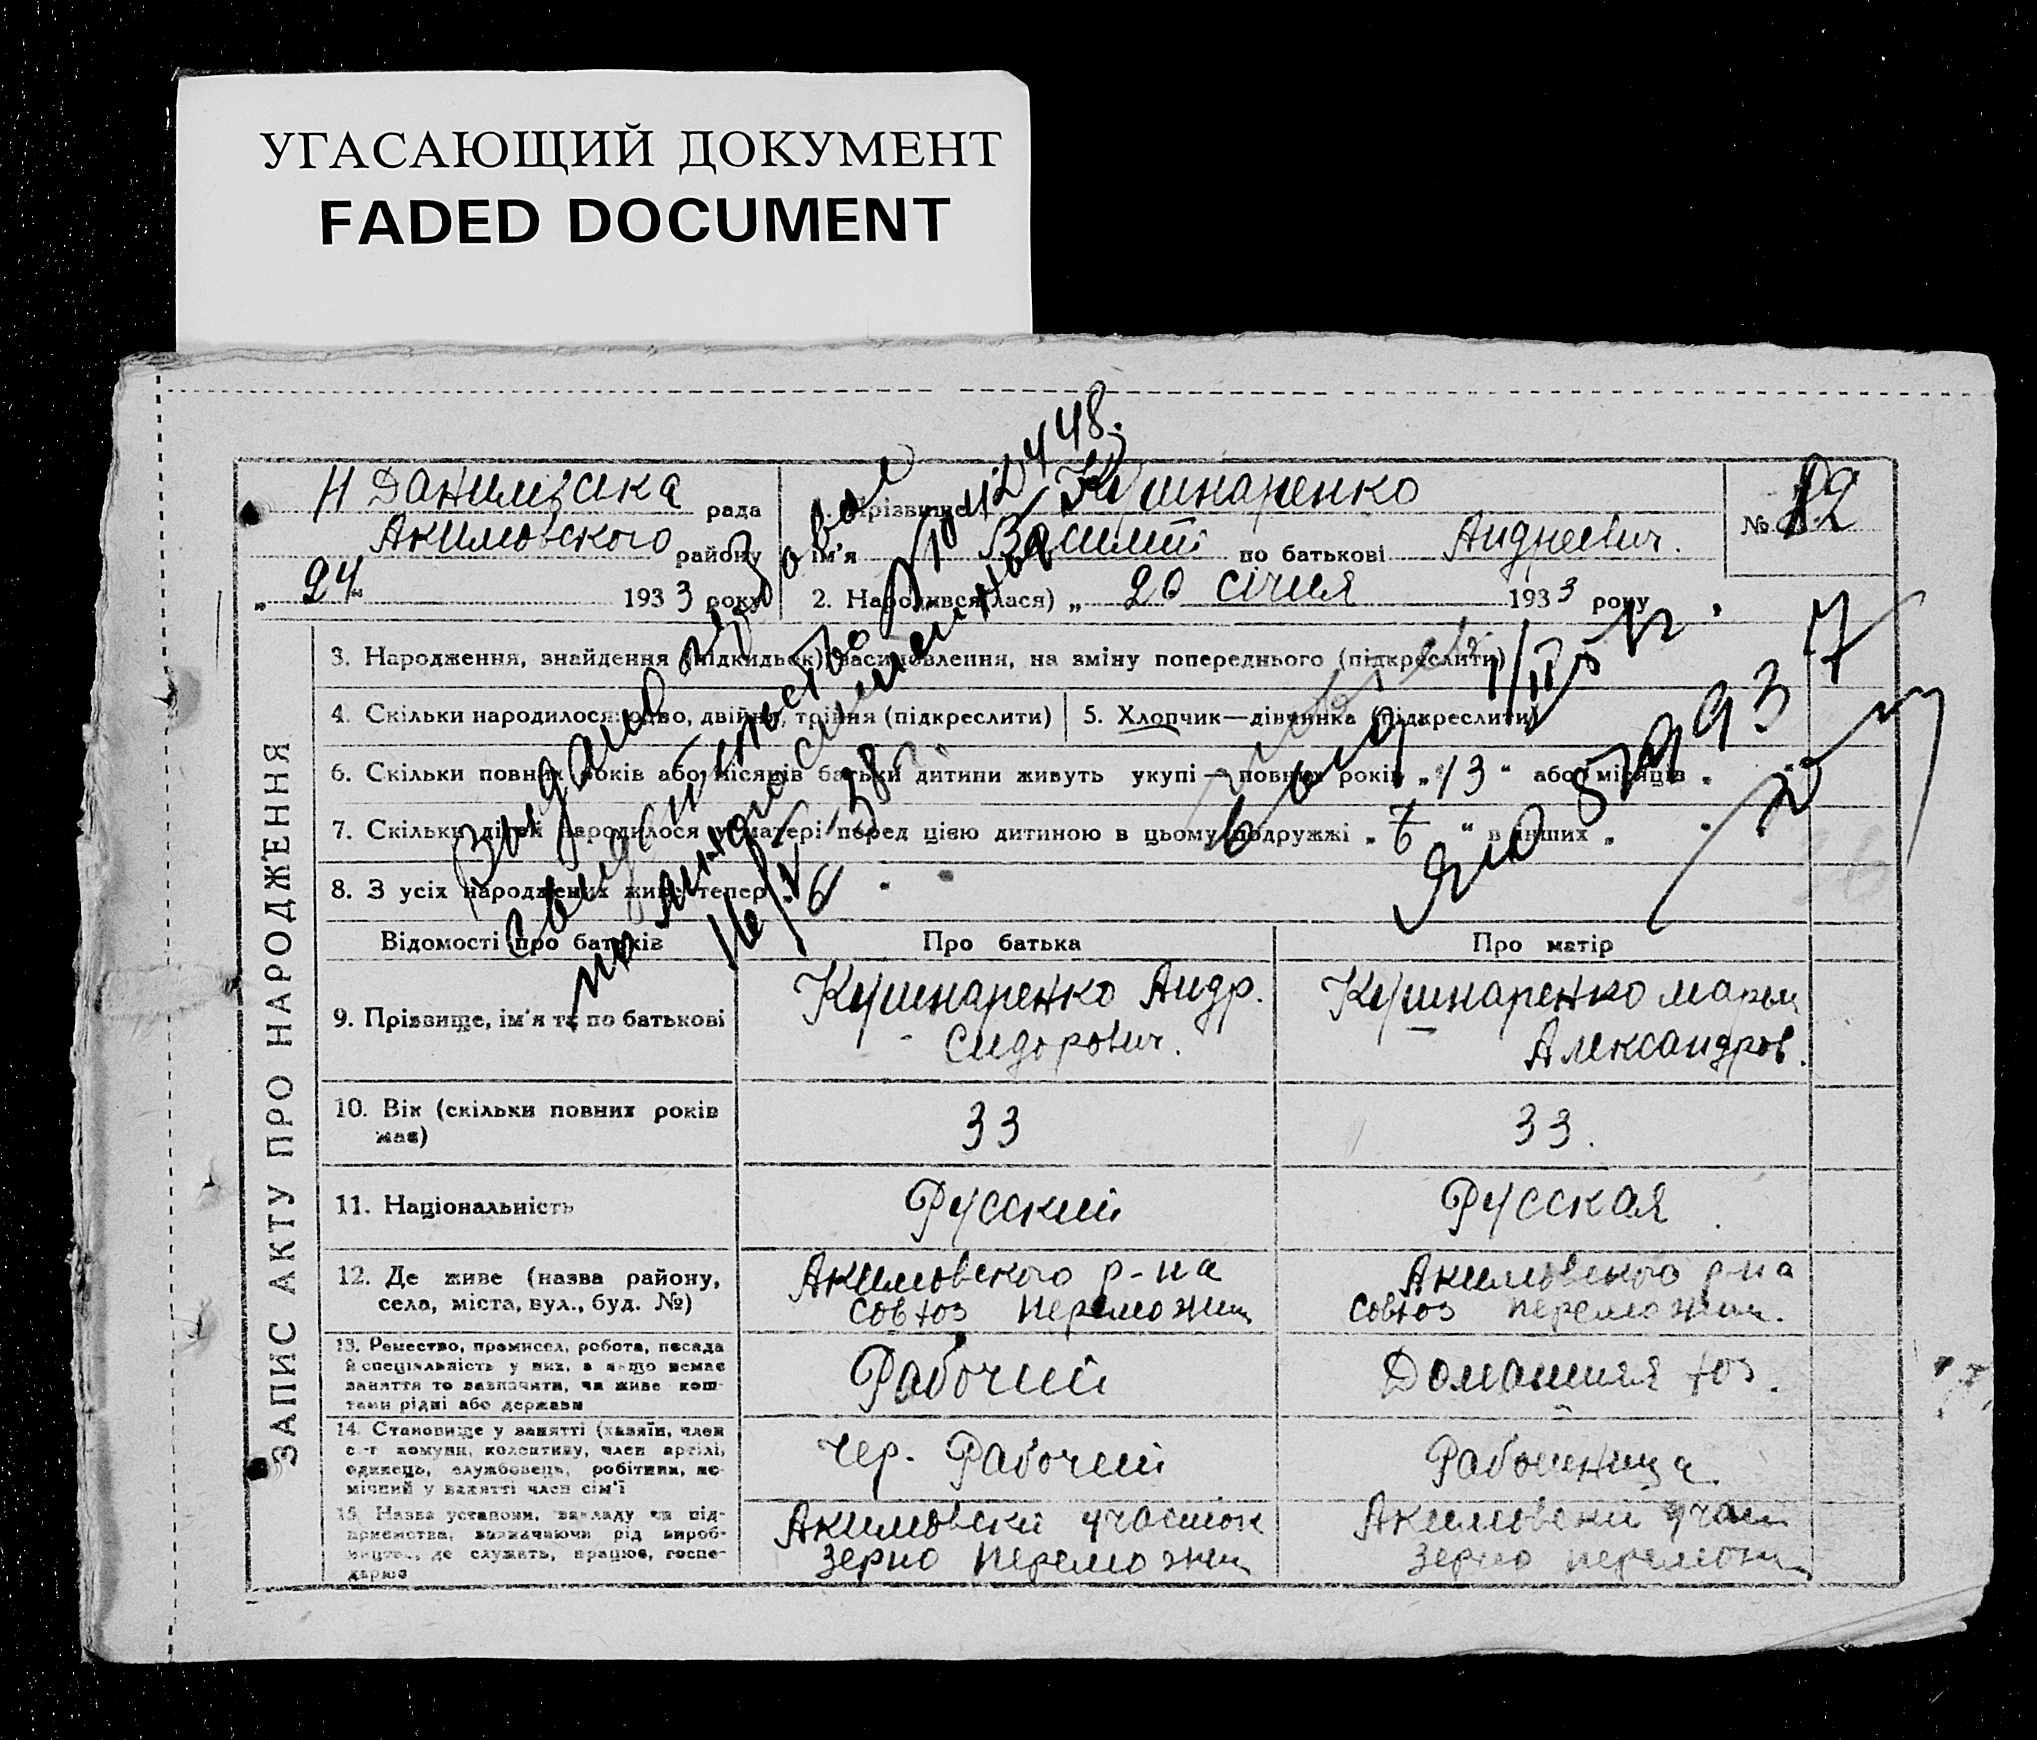 УГАСАЮЩИЙ ДОКУМЕНТ
FADED DOCUMENT
Н Данилівська рада
Акимовского району
„ 24 " 1933 року
Прізвище Кушнаренко
ім'я Василий по батькові Андреевич.
№ 12
2. Народився(лася) „ 20 січня 1933 року
ЗАПИС АКТУ ПРО НАРОДЖЕННЯ
3. Народження, знайдення (підкидьок), засиновлення, на зміну попереднього (підкреслити)
4. Скільки народилося: одно, двійня, трійня (підкреслити)
5. Хлопчик—дівчинка (підкреслити)
6. Скільки повних років або місяців батьки дитини живуть укупі — повних років „ 13 " або місяців „
7. Скільки дітей народилося у матері перед цією дитиною в цьому подружжі „ 6 " в інших „
8. З усіх народжених живе тепер 6
Выдано
свидетельство
16/V 38 г.
ЯЮ 879937
Відомості про батьків
Про батька
Про матір
9. Прізвище, ім'я та по батькові
Кушнаренко Андр.
Сидорович.
Кушнаренко Марья
Александров.
10. Вік (скільки повних років має)
33
33.
11. Національність
Русский
Русская
12. Де живе (назва району, села, міста, вул., буд. №)
Акимовского р-на
совхоз Переможец
Акимовского р-на
совхоз Переможец.
13. Ремество, промисел, робота, посада
й спеціяльність у них, а якщо немає
заняття то зазначити, чи живе кош-
тами рідні або держави
Рабочий
Домашняя хоз.
14. Становище у занятті (хазяїн, член
с-г комуни, колективу, член артілі,
одинець, службовець, робітник, по-
мічний у занятті член сім'ї
Чер. Рабочий
Работница
15. Назва установи, закладу чи під-
приємства, зазначаючи рід вироб-
ництва, де служить, працює, госпо-
дарює
Акимовский участок
Зерно Переможец
Акимовский участ
Зерно Переможец